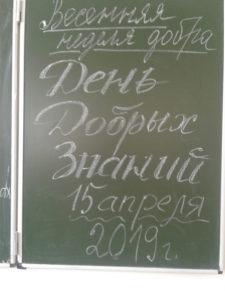 Весенняя
неделя добра
День
Добрых
Знаний
15 апреля
2019г.